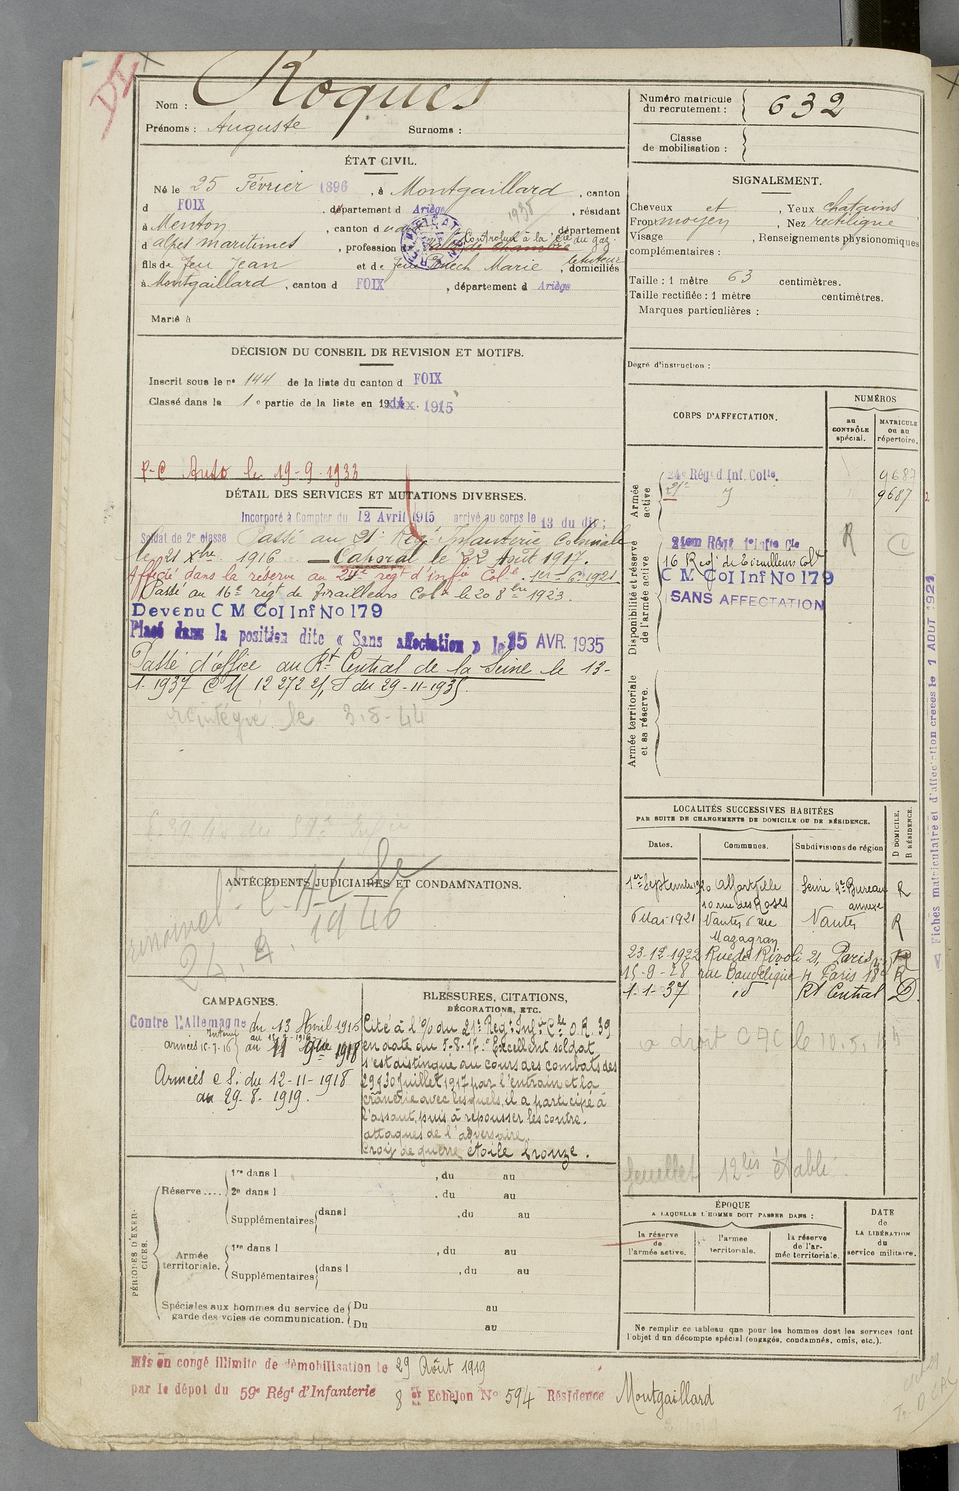 DE
Nom : Roques
Prénoms : Auguste Surnoms :
Numéro matricule du recrutement : 632
Classe de mobilisation :
ÉTAT CIVIL.
Né le 25 Février 1896, à Montgaillard, canton
d FOIX, département d Ariège, résidant
1938
à Menton, canton d, département
d alpes maritimes, profession d Controleur à la Cie du gaz
fils de feu Jean et de feue Marie, domiciliés
à Montgaillard, canton d FOIX, département d Ariège
Marié à
SIGNALEMENT.
Cheveux et, Yeux chatains
Front moyen, Nez rectiligne
Visage, Renseignements physionomiques
complémentaires :
Taille : 1 mètre 63 centimètres.
Taille rectifiée : 1 mètre centimètres.
Marques particulières :
Degré d'instruction :
DÉCISION DU CONSEIL DE REVISION ET MOTIFS.
Inscrit sous le n° 144 de la liste du canton d FOIX
Classé dans la 1e partie de la liste en 1915
P-C Auto le 19-9-1933
DÉTAIL DES SERVICES ET MUTATIONS DIVERSES.
Incorporé à Compter du 12 Avril 1915 arrivé au corps le 13 du dit;
Soldat de 2e classe Passé au 21e Régt Infanterie Coloniale
le 21 Xbre 1916 — Caporal le 22 Août 1917.
Affecté dans la réserve au 24e régt d'infie Cole 1er-6-1921
Passé au 16e régt de Tirailleurs Colx le 20 8bre 1923.
Devenu C M Col Inf No 179
Placé dans la position dite « Sans affectation » le 15 AVR. 1935
Passé d'office au Rt Central de la Seine le 13-
1-1937 CM 12272 2/S du 29-11-1935.
réintégré le 3-8-44
CORPS D'AFFECTATION.
NUMÉROS
au CONTRÔLE spécial.
MATRICULE ou au répertoire.
Armée active
24e Régt d'Inf. Colle. 9687
21e 9687
Disponibilité et réserve de l'armée active
21em Régt d'Infie Cle
16 Régt de Tirailleurs Colx
C M Col Inf No 179
SANS AFFECTATION
R
Armée territoriale et sa réserve.
Fiches matriculaire et d'affectation créées le 1 AOUT 1921
LOCALITÉS SUCCESSIVES HABITÉES
PAR SUITE DE CHANGEMENTS DE DOMICILE OU DE RÉSIDENCE.
D DOMICILE. R RÉSIDENCE.
Dates. Communes. Subdivisions de région
1er Septembre 1920 Alfortville Seine 4e Bureau R
10 rue des Roses annexe
6 Mai 1921 Nantes 6 rue Nantes R
Mazagran
23-12-1922 Rue de Rivoli 21 Paris R
15-9-28 rue Dancourt 4 Paris 18e R
1-1-37 id Rt Central D.
a droit CAC le 10.5.
feuillet 12bis établi
ANTÉCÉDENTS JUDICIAIRES ET CONDAMNATIONS.
1946
CAMPAGNES.
Contre l'Allemagne du 13 Avril 1915
au 11 9bre 1918
Armées C S. du 12-11-1918
au 29-8-1919.
BLESSURES, CITATIONS,
DÉCORATIONS, ETC.
Cité à l'O/ du 21e Régt Infie Cle O.R. 39
en date du 5-8-17 : Excellent soldat
s'est distingué au cours des combats des
29 & 30 juillet 1917 par l'entrain et la
crânerie avec lesquels il a participé à
l'assaut, puis à repousser les contre-
attaques de l'adversaire.
croix de guerre étoile bronze.
PÉRIODES D'EXERCICES.
Réserve....
1re dans l, du au
2e dans l, du au
Supplémentaires dans l, du au
Armée territoriale.
1re dans l, du au
Supplémentaires dans l, du au
Spéciales aux hommes du service de garde des voies de communication.
Du au
Du au
ÉPOQUE
A LAQUELLE L'HOMME DOIT PASSER DANS :
la réserve de l'armée active.
l'armée territoriale.
la réserve de l'armée territoriale.
DATE de LA LIBÉRATION du service militaire.
Ne remplir ce tableau que pour les hommes dont les services font
l'objet d'un décompte spécial (engagés, condamnés, omis, etc.).
Mis en congé illimité de démobilisation le 29 Août 1919
par le dépôt du 59e Régt d'Infanterie 8 Echelon No 594 Résidence Montgaillard